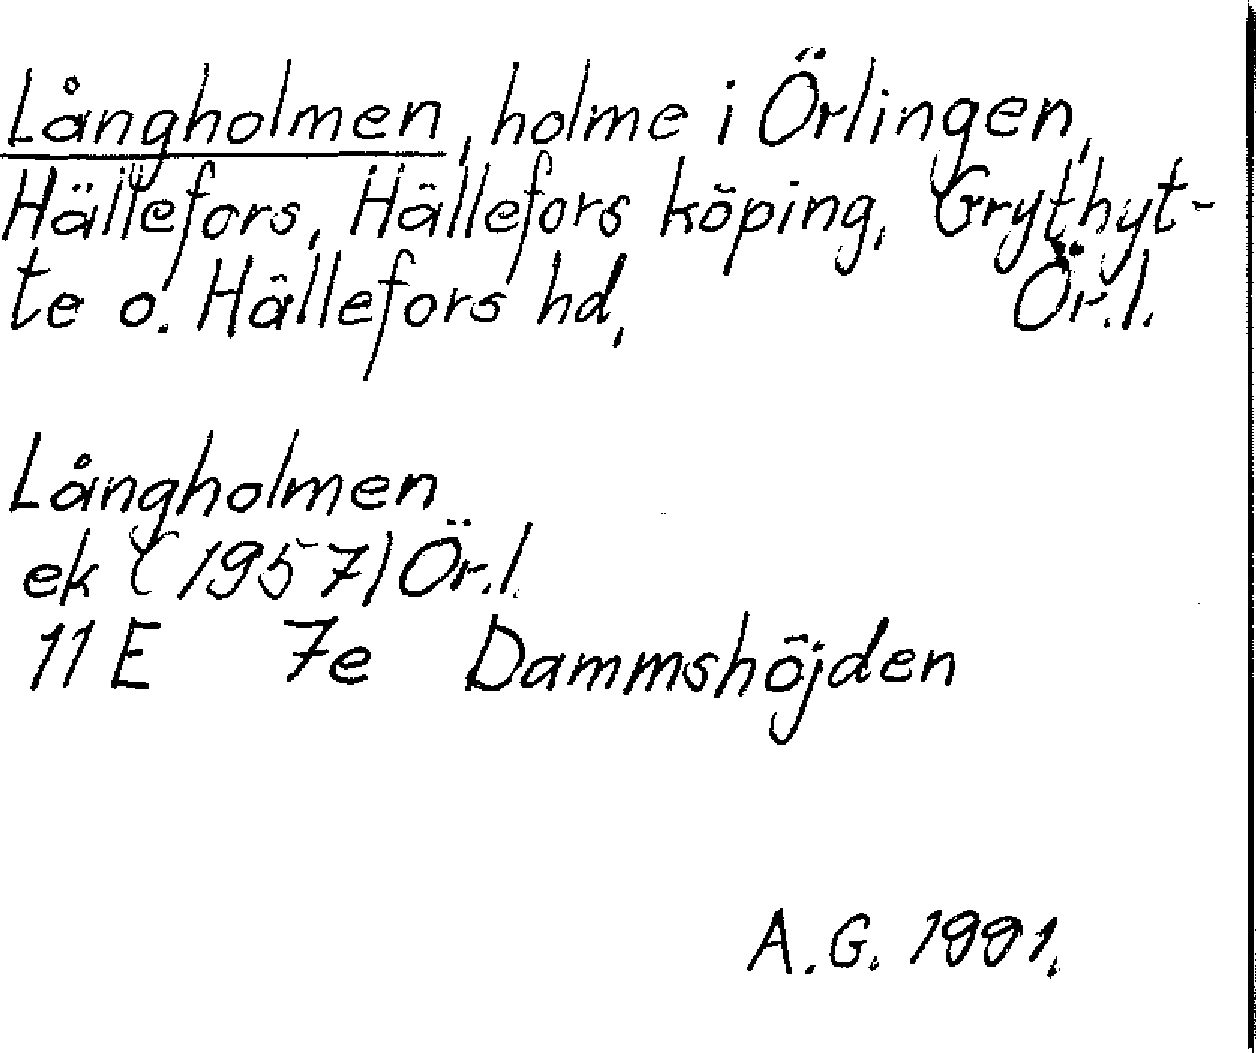 Långholmen, holme i Örlingen,
Hällefors, Hällefors köping, Grythyt-
te o. Hällefors hd, Ör.l.
Långholmen
ek (1957) Ör.l.
11 E 7e Dammshöjden
A.G. 1991.